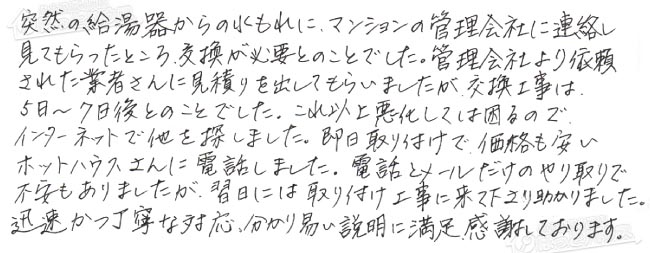 突然の給湯器からの水もれに、マンションの管理会社に連絡し
見てもらったところ、交換が必要とのことでした。管理会社より依頼
された業者さんに見積りを出してもらいましたが、交換工事は、
5日～7日後とのことでした。これ以上悪化しては困るので、
インターネットで他を探しました。即日取り付けで、価格も安い
ホットハウスさんに電話しました。電話とメールだけのやり取りで
不安もありましたが、翌日には取り付け工事に来て下さり助かりました。
迅速かつ丁寧な対応、分かり易い説明に満足、感謝しております。